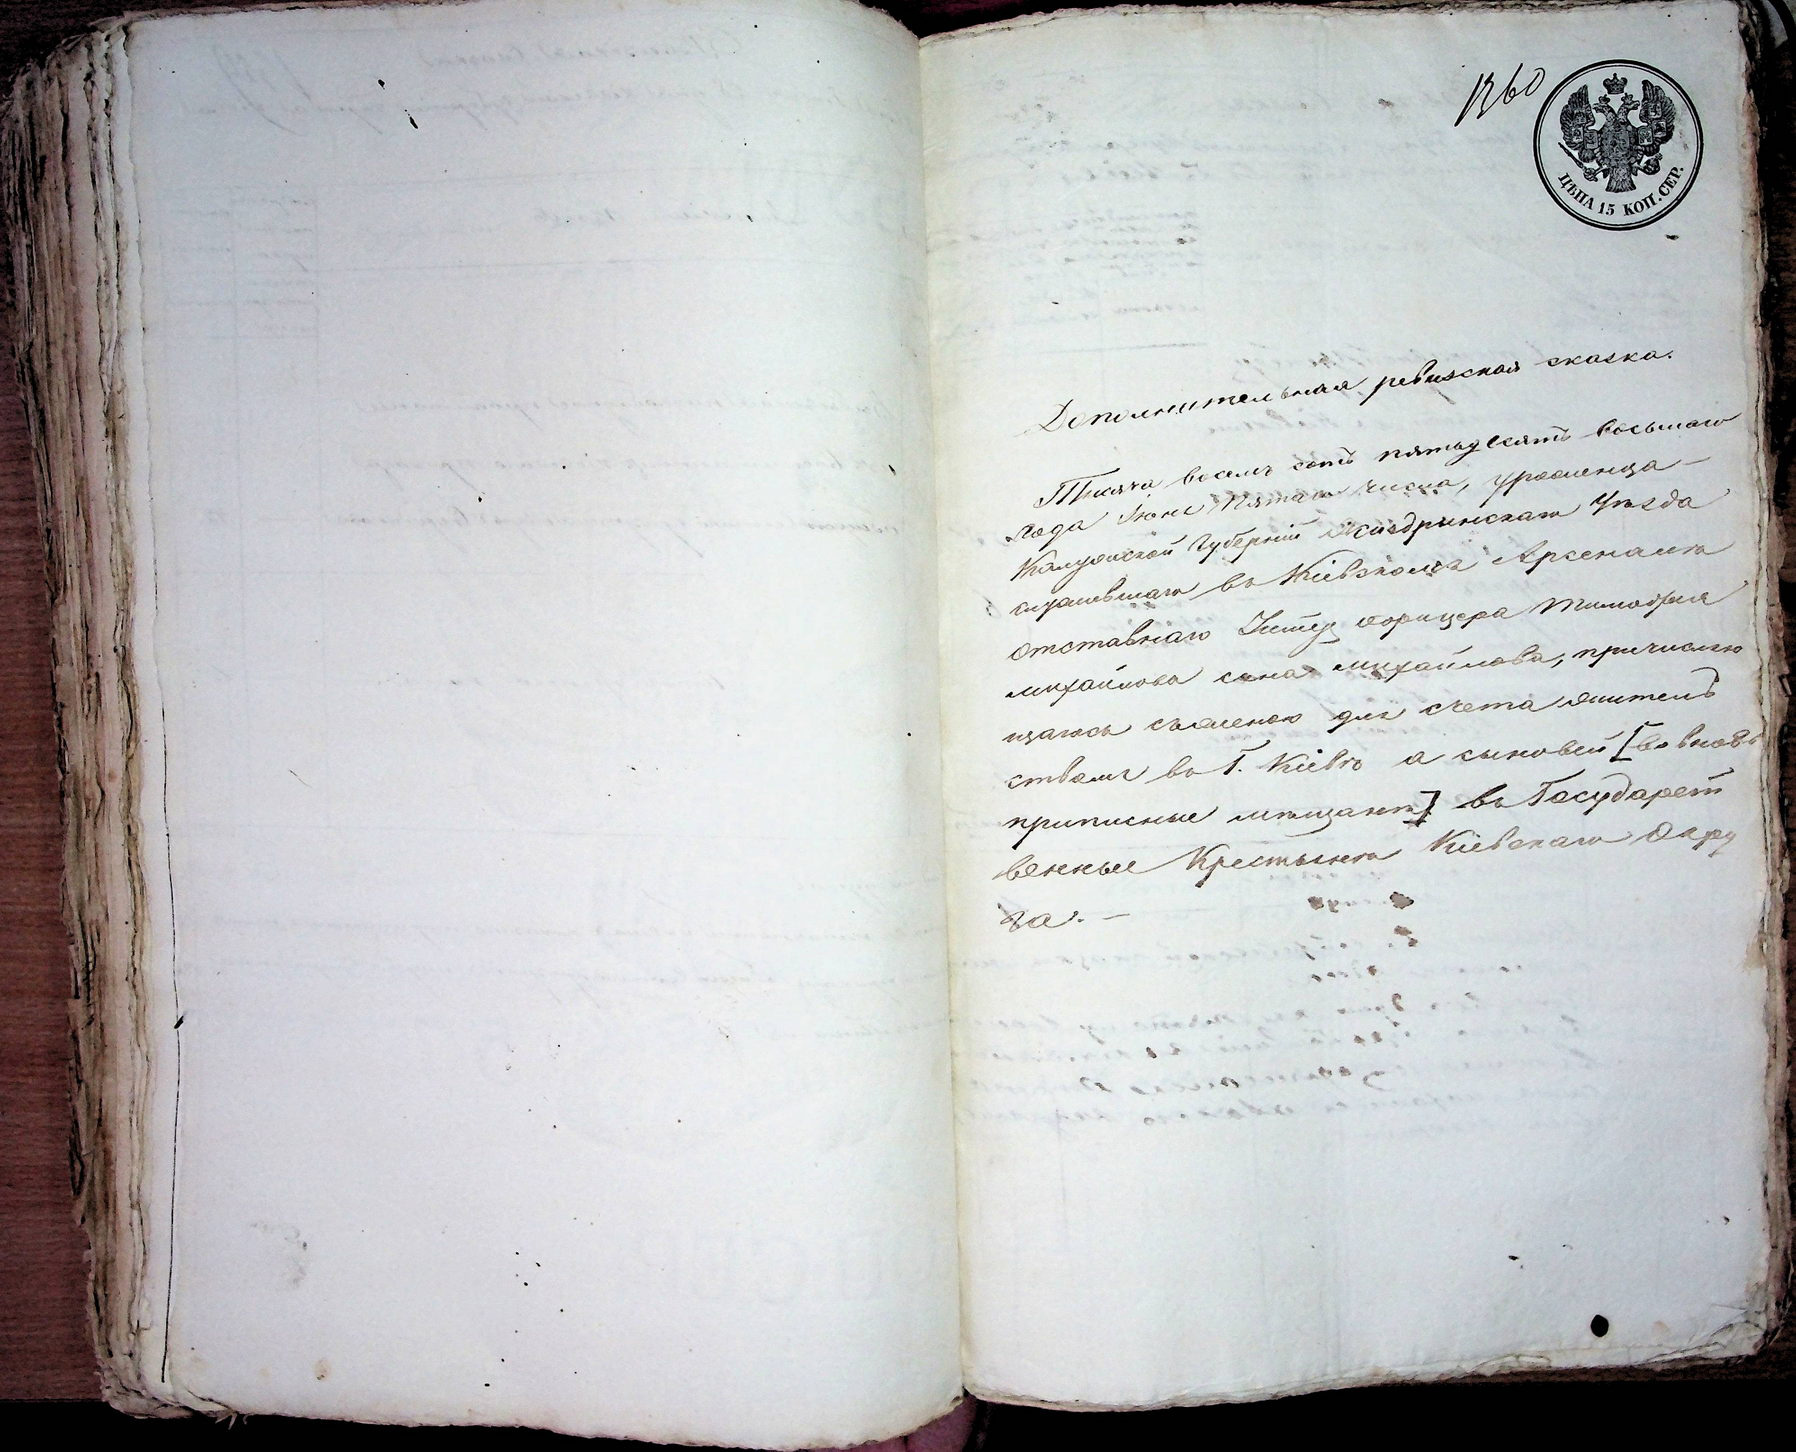 1360
ЦѢНА 15 КОП. СЕР.
Дополнительная ревизская сказка.
Тысяча восемь сотъ пятьдесятъ восьмаго
года Іюня Пятаго числа, уроженца
Калужской Губерніи Жиздринскаго Уѣзда
служившаго въ Кіевскомъ Арсеналѣ
отставнаго Унтер офицера Тимофея
Михайлова сына Михайлова, причислаю
щагось съ женою для счета житель
ствомъ въ Г. Кіевѣ а сыновей [во вновь
приписные мещане] въ Государст
венные Крестьяне Кіевскаго Окру
га. —